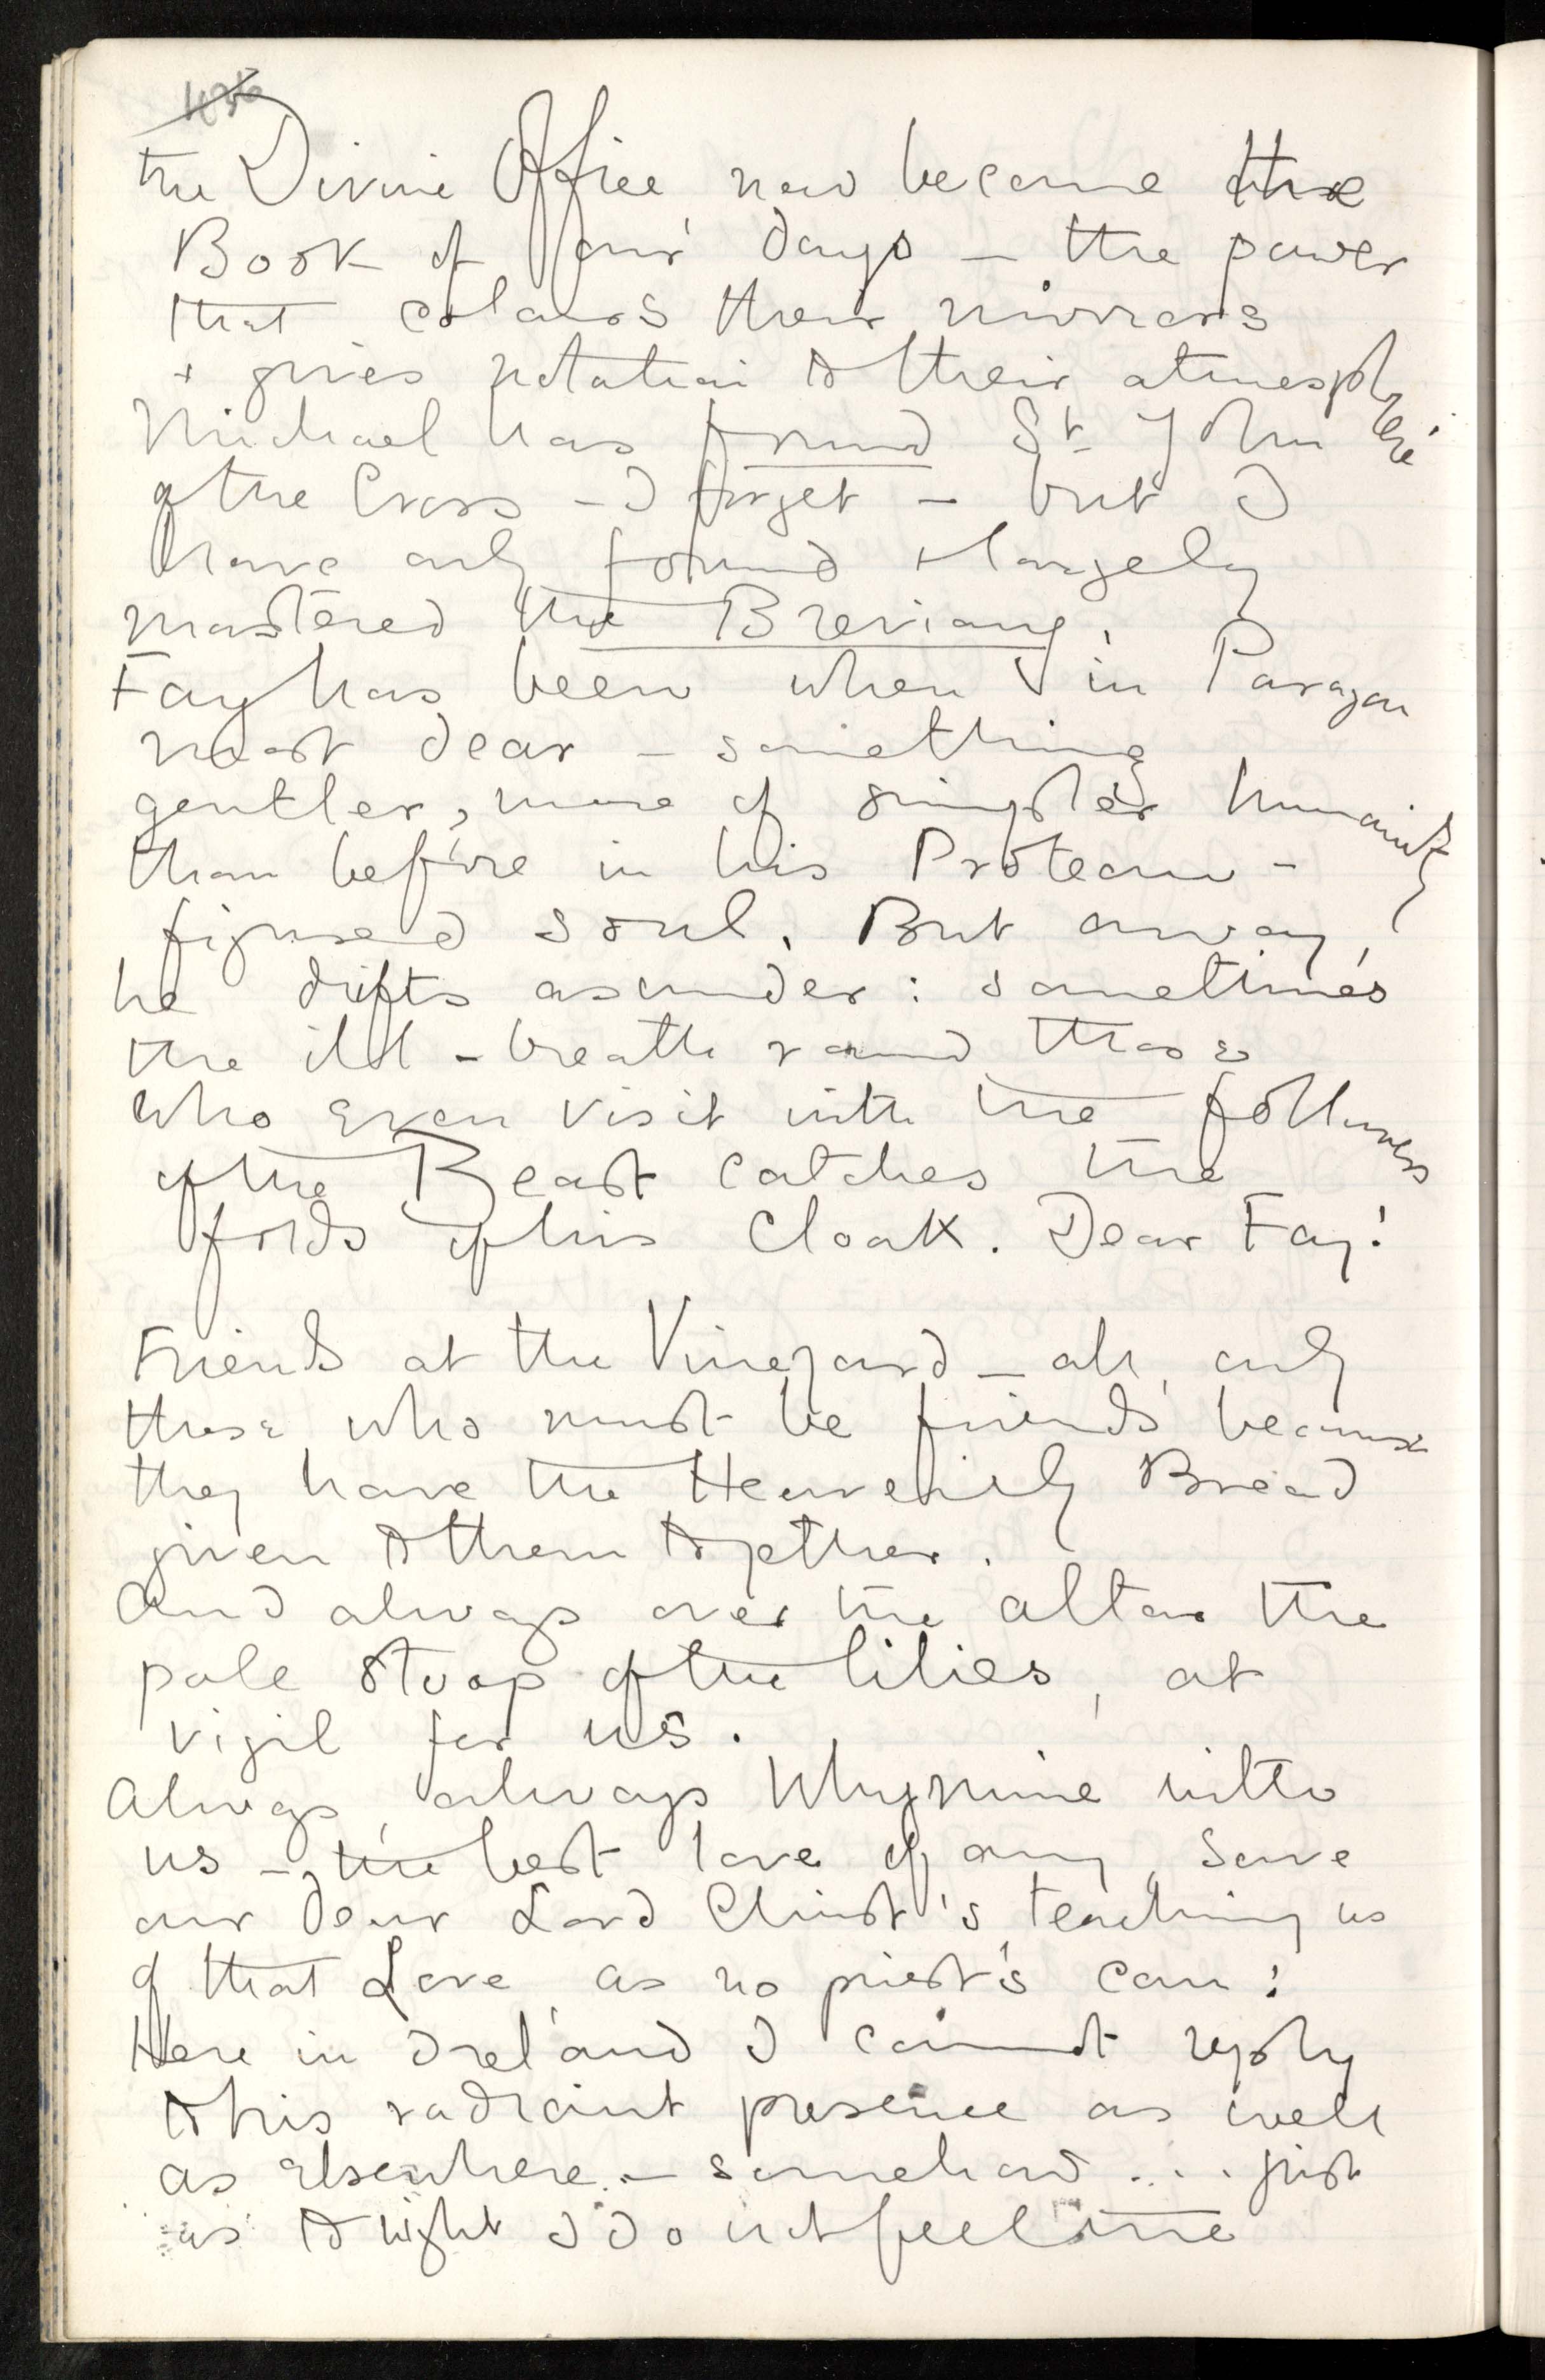 the Divine Office now become the
Book of our days – the power
that colours their mirrors
+ gives notation to their atmosphere
Michael has found St John
of the Cross – I forget – but I
have only found + largely
mastered the Breviary.
Fay has been when in Paragon
most dear – something
gentler, more of simpler humanity
than before in his Protean-
figured soul. But away,
he drifts asunder: sometimes
the ill-breath round those
who even visit with the followers
of the Beast catches the
folds of his cloak. Dear Fay!
Friends at the Vineyard – ah, only
those who must be friends because
they have the Heavenly Bread
given to them together.
And always over the altar the
pale stoop of the lilies, at
vigil for us.
Always, always Whym mine with
us – the best love of any, save
our dear Lord Christ's, teaching us
of that Love, as no priest's can:
Here in Ireland I cannot reply
to his radiant presence as well
as elsewhere – somehow ... just
as to night I do not feel the